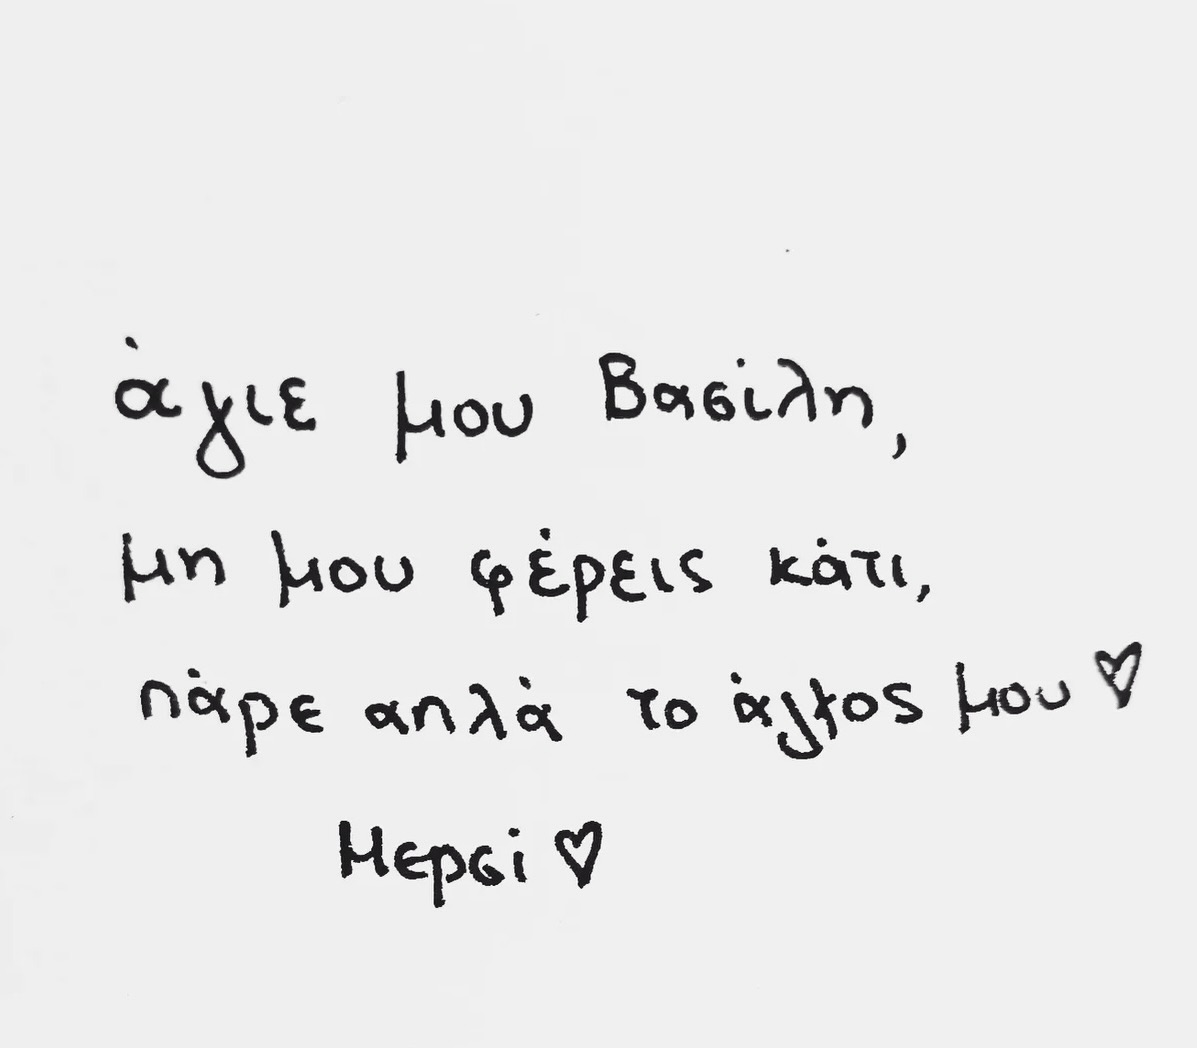 άγιε μου Βασίλη,
μη μου φέρεις κάτι,
πάρε απλά το άγχος μου ♡
Μερσί ♡